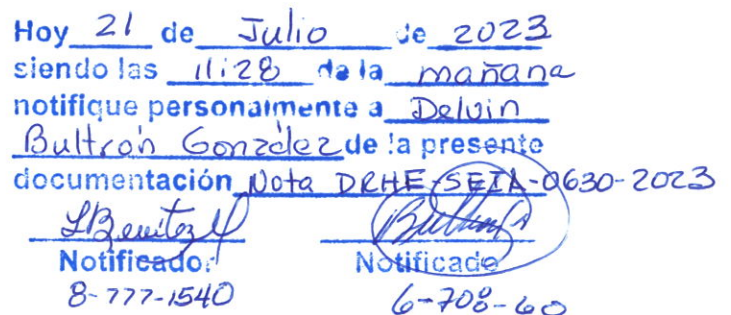 Hoy 21 de Julio de 2023
siendo las 11:28 de la mañana
notifique personalmente a Delvin
Bultrón González de la presente
documentación Nota DRHE-SEIA-0630-2023
LBenitez
Notificador Notificado
8-777-1540 6-708-60